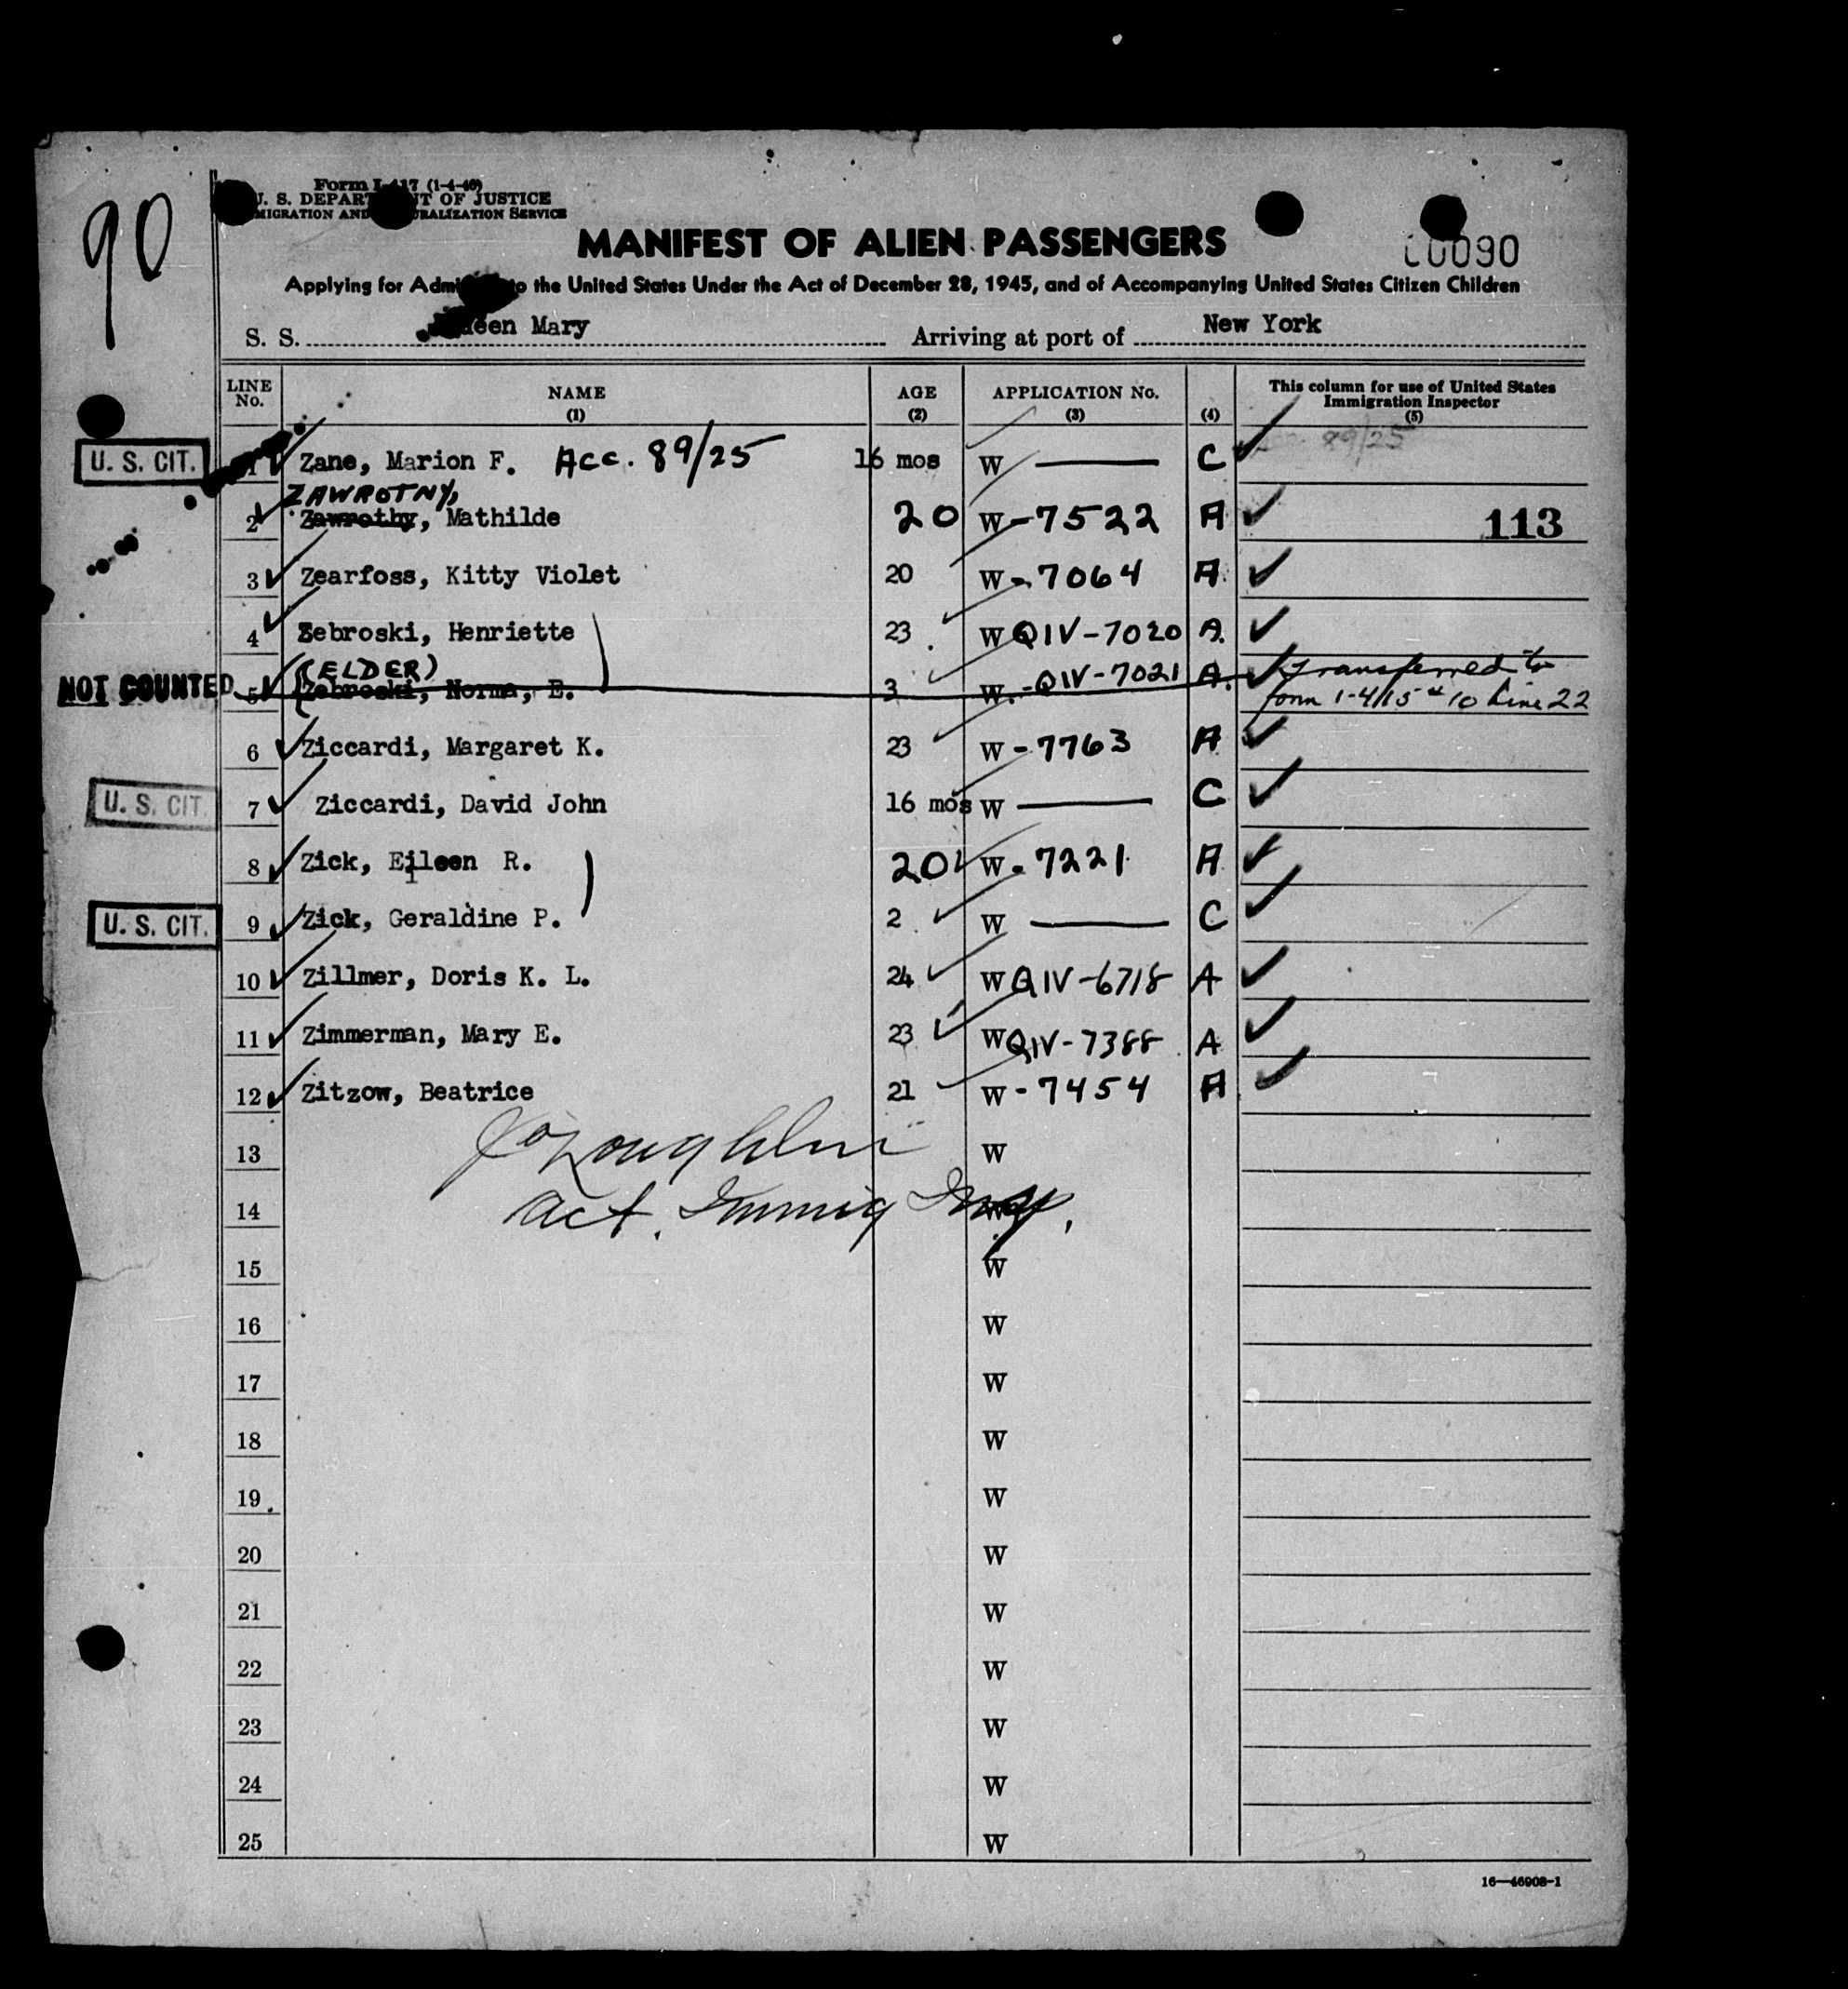 90
Form I-417 (1-4-46)
U. S. DEPARTMENT OF JUSTICE
IMMIGRATION AND NATURALIZATION SERVICE
MANIFEST OF ALIEN PASSENGERS
00090
Applying for Admission to the United States Under the Act of December 28, 1945, and of Accompanying United States Citizen Children
S. S. Queen Mary Arriving at port of New York
LINE No. NAME (1) AGE (2) APPLICATION No. (3) (4) This column for use of United States Immigration Inspector (5)
U. S. CIT. 1 Zane, Marion F. Acc. 89/25 16 mos W — C 89/25
ZAWROTNY,
2 Zawrothy, Mathilde 20 W-7522 A 113
3 Zearfoss, Kitty Violet 20 W-7064 A
4 Zebroski, Henriette 23 W QIV-7020 A
(ELDER)
NOT COUNTED 5 Zebroski, Norma, E. 3 W.-QIV-7021 A. Transferred to
form 1-415 # 10 Line 22
6 Ziccardi, Margaret K. 23 W-7763 A
U. S. CIT. 7 Ziccardi, David John 16 mos W — C
8 Zick, Eileen R. 20 W-7221 A
U. S. CIT. 9 Zick, Geraldine P. 2 W — C
10 Zillmer, Doris K. L. 24 W QIV-6718 A
11 Zimmerman, Mary E. 23 W QIV-7388 A
12 Zitzow, Beatrice 21 W-7454 A
13 W
14 Act. Immig Insp. W
15 W
16 W
17 W
18 W
19 W
20 W
21 W
22 W
23 W
24 W
25 W
16—46908-1